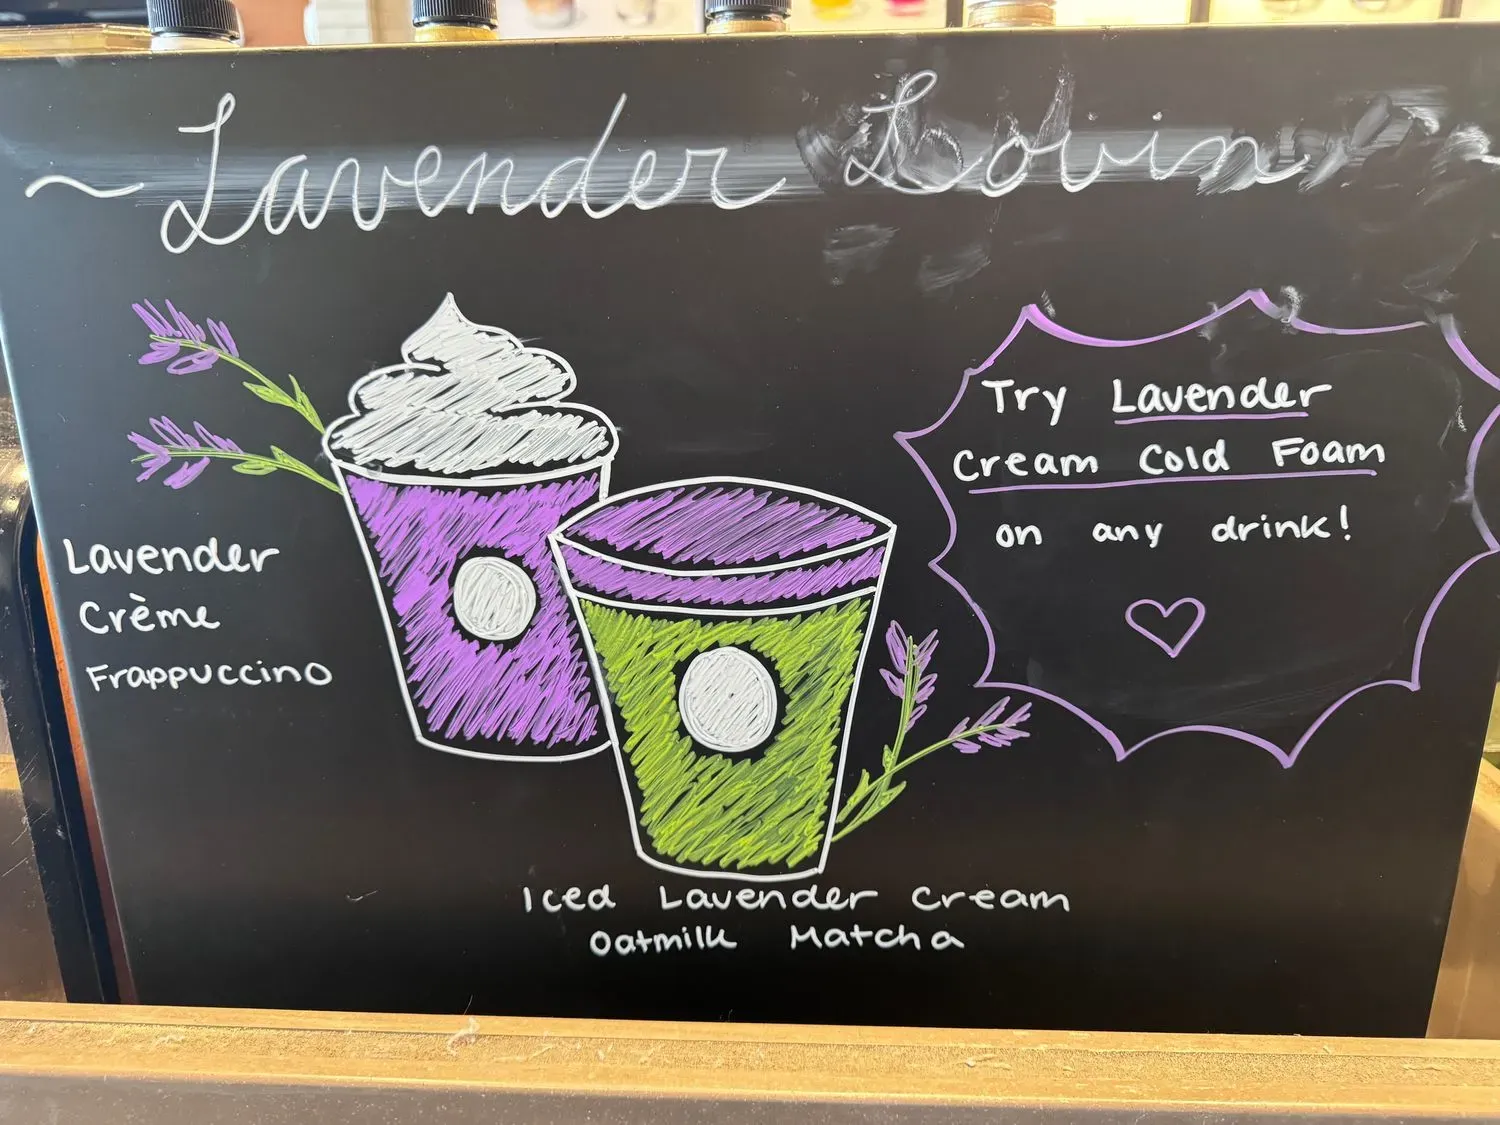 ~ Lavender Lovin
Try Lavender
Cream Cold Foam
on any drink!
Lavender
Crème
Frappuccino
Iced Lavender Cream
Oatmilk Matcha